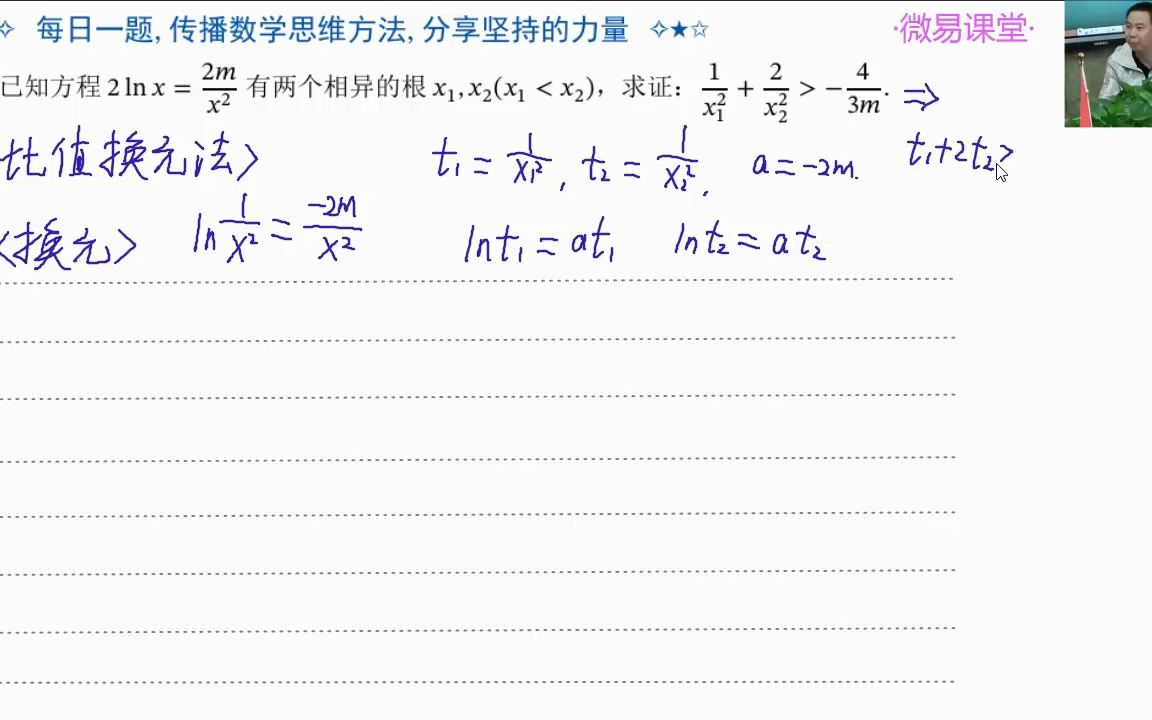 ✧ 每日一题, 传播数学思维方法, 分享坚持的力量 ✧★☆
·微易课堂·
已知方程 2 ln x = 2m/x² 有两个相异的根 x₁, x₂(x₁ < x₂)，求证：1/x₁² + 2/x₂² > −4/3m. ⇒
比值换元法〉 t₁ = 1/x₁², t₂ = 1/x₂², a = −2m. t₁+2t₂>
〈换元〉 ln 1/x² = −2m/x² ln t₁ = at₁ ln t₂ = at₂